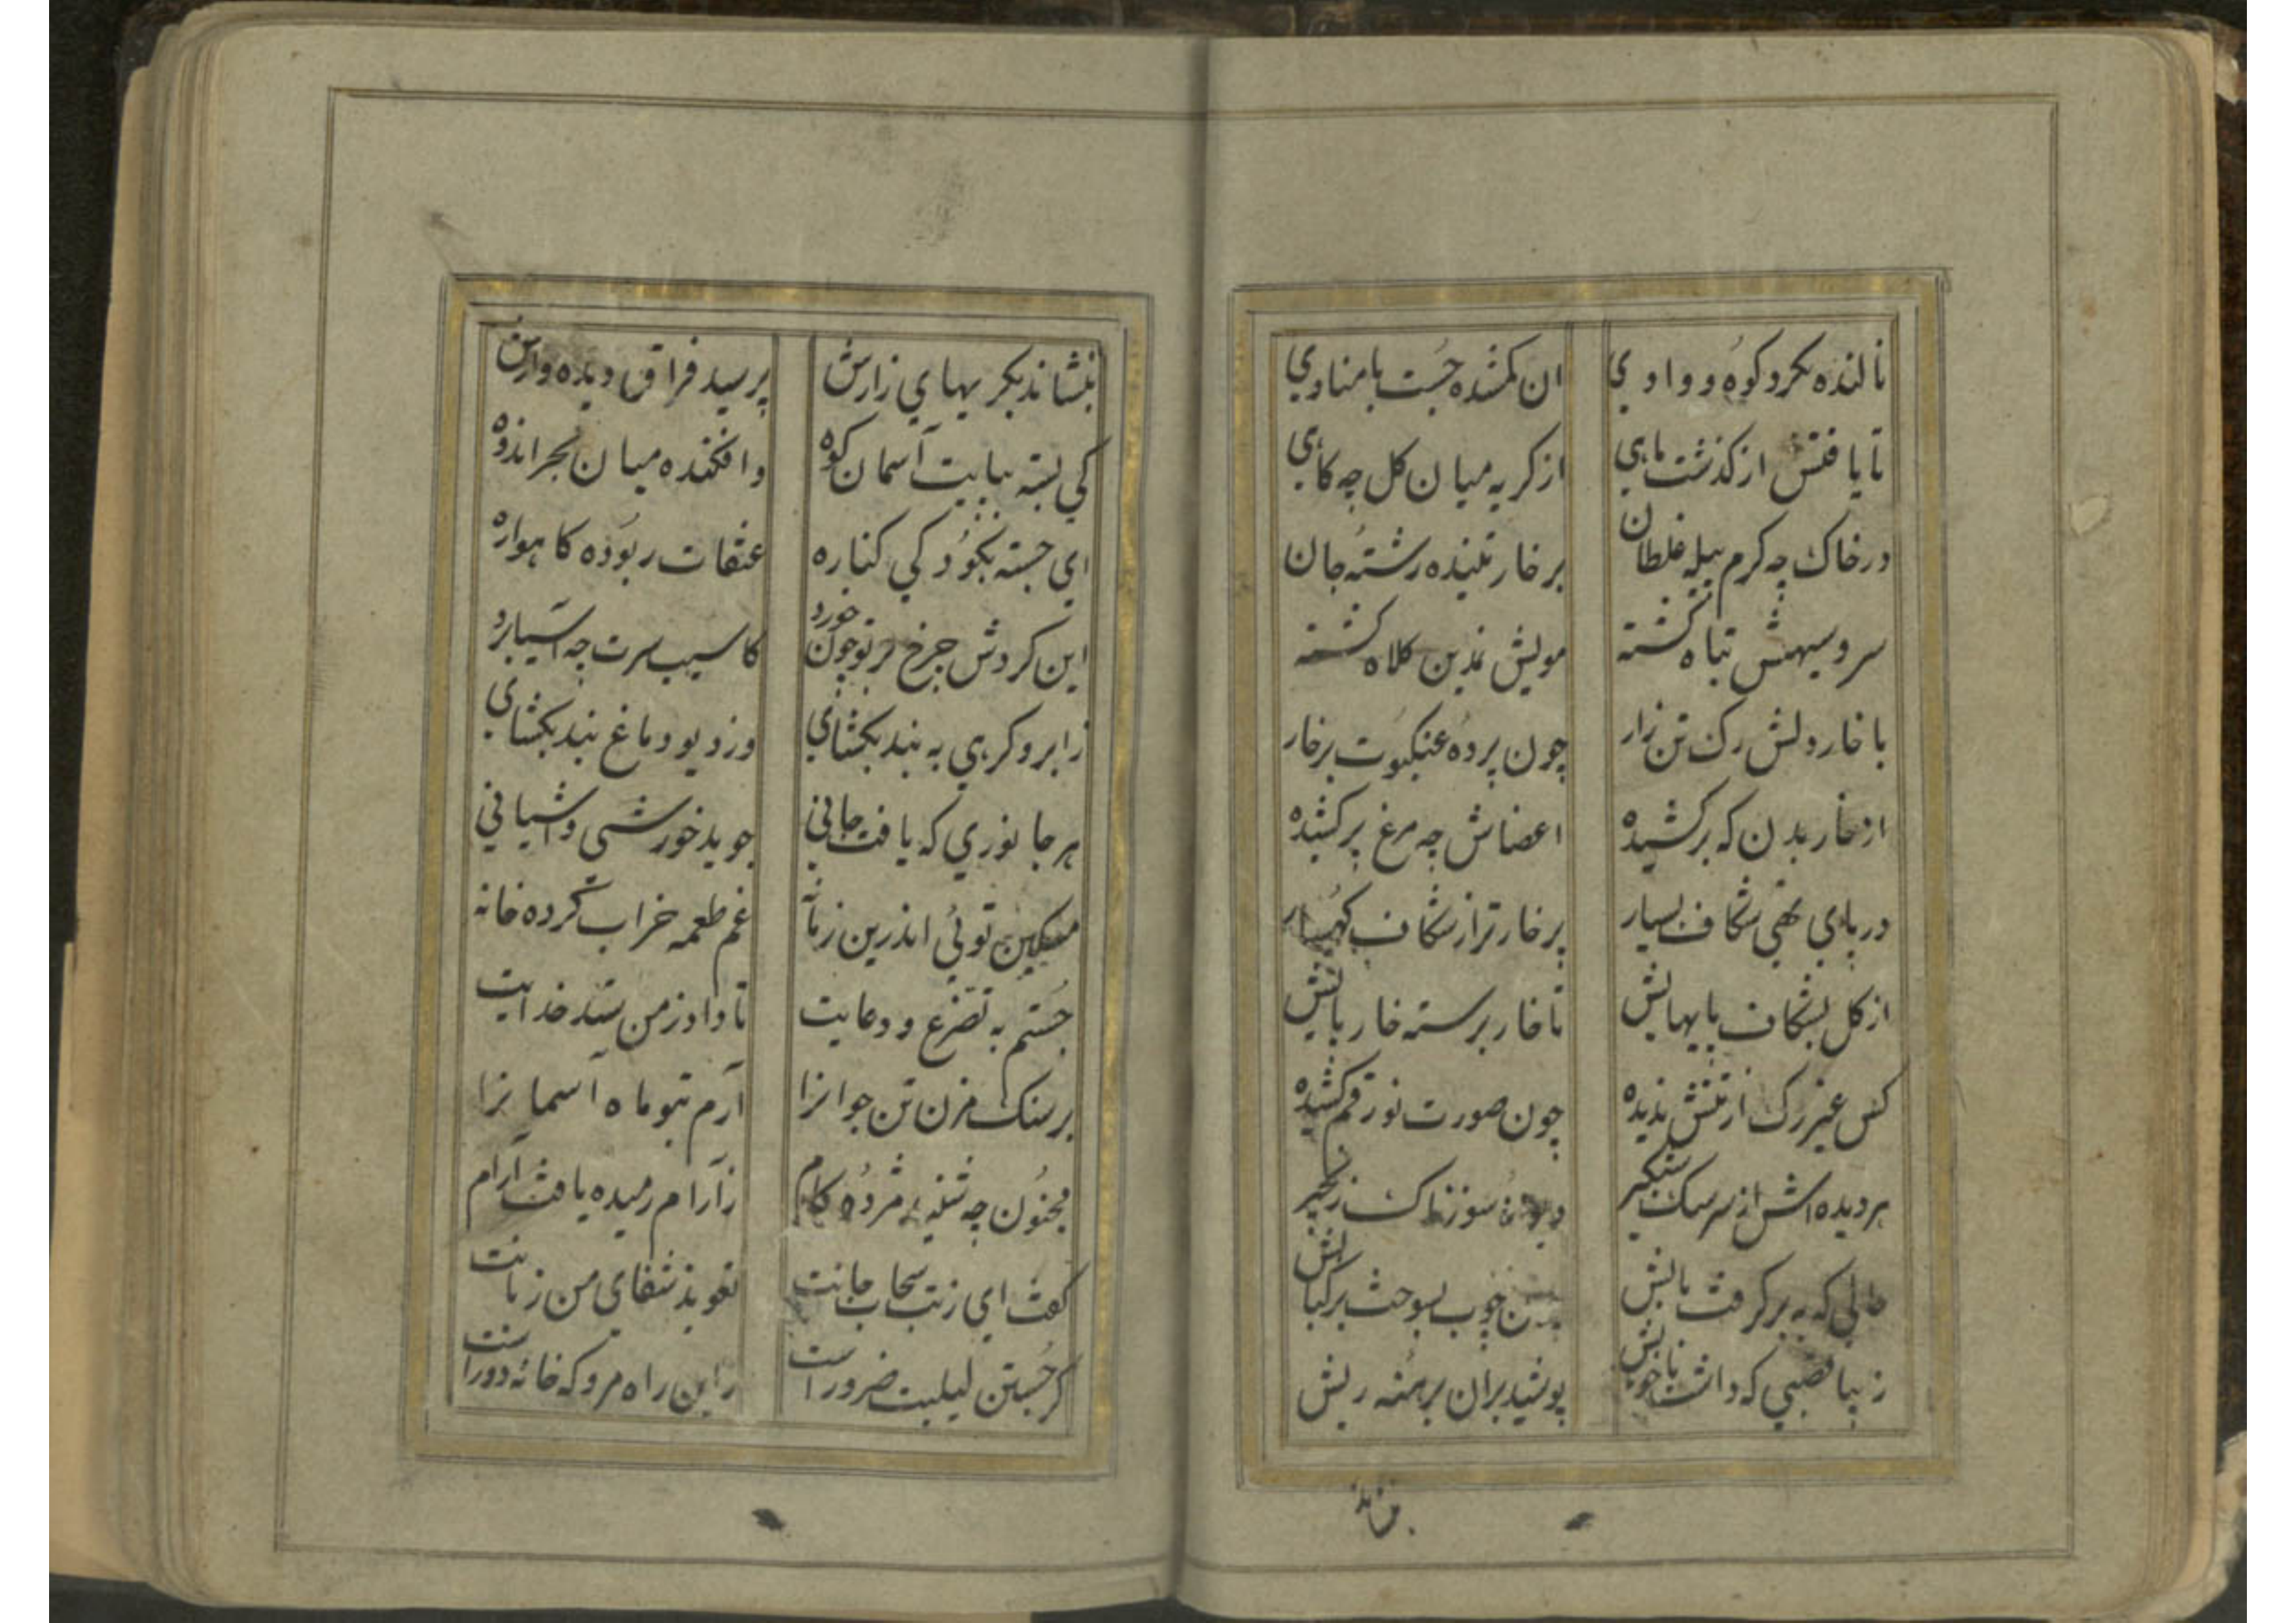 نالنده بکرد کوه و وادي ان کمشده جست با منادي
تا يافتش از کذشت ماهي از کريه ميان کل چه کاهي
در خاک چه کرم پيله غلطان بر خار تنيده رشته جان
سرو سيهش تباه کشته مويش نمدين کلاه کشته
با خار دلش رک تن زار چون پرده عنکبوت بر خار
از خار بدن که بر کشيده اعضاش چه مرغ پر کشيده
در پاي تهي شکاف بسيار پر خار تر از شکاف کهسار
از کل بشکاف پايهايش تا خار برسته خار پايش
کس غير رک از تنش نديده چون صورت نو رقم کشيده
هر ديده اش از سرسک سنکير سوزناک زنجير
حالي که به بر کرفت بالش چوب بسوخت بر کيالش
زيبا قصبي که داشت با خويش پوشيد بران برهنه ريش
بنشاند بکريهاي زارش پرسيد فراق ديده وارش
کي بسته بپايت آسمان کوه وافکنده ميان بحر اندوه
اي جسته بکود کي کناره عنقات ربوده کاهواره
اين کردش چرخ بر تو چون خورد کاسيب سرت چه آسيا برد
ز ابرو کرهي به بند بکشاي وز ديو دماغ بند بکشاي
هر جانوري که يافت جاني جويد خورشي و آشياني
مسکين توئي اندرين زمانه غم طعمه خراب کرده خانه
جستم به تضرع و دعايت تا داد ز من ستد خدايت
بر سنک مزن تن جوانرا آرم بتو ماه آسمانرا
مجنون چه شنيد مژده کام ز آرام رميده يافت آرام
کفت اي ز تب سحاب جانت تعويذ شفاي من زبانت
کر جستن ليليت ضرور است زاين راه مرو که خانه دور است